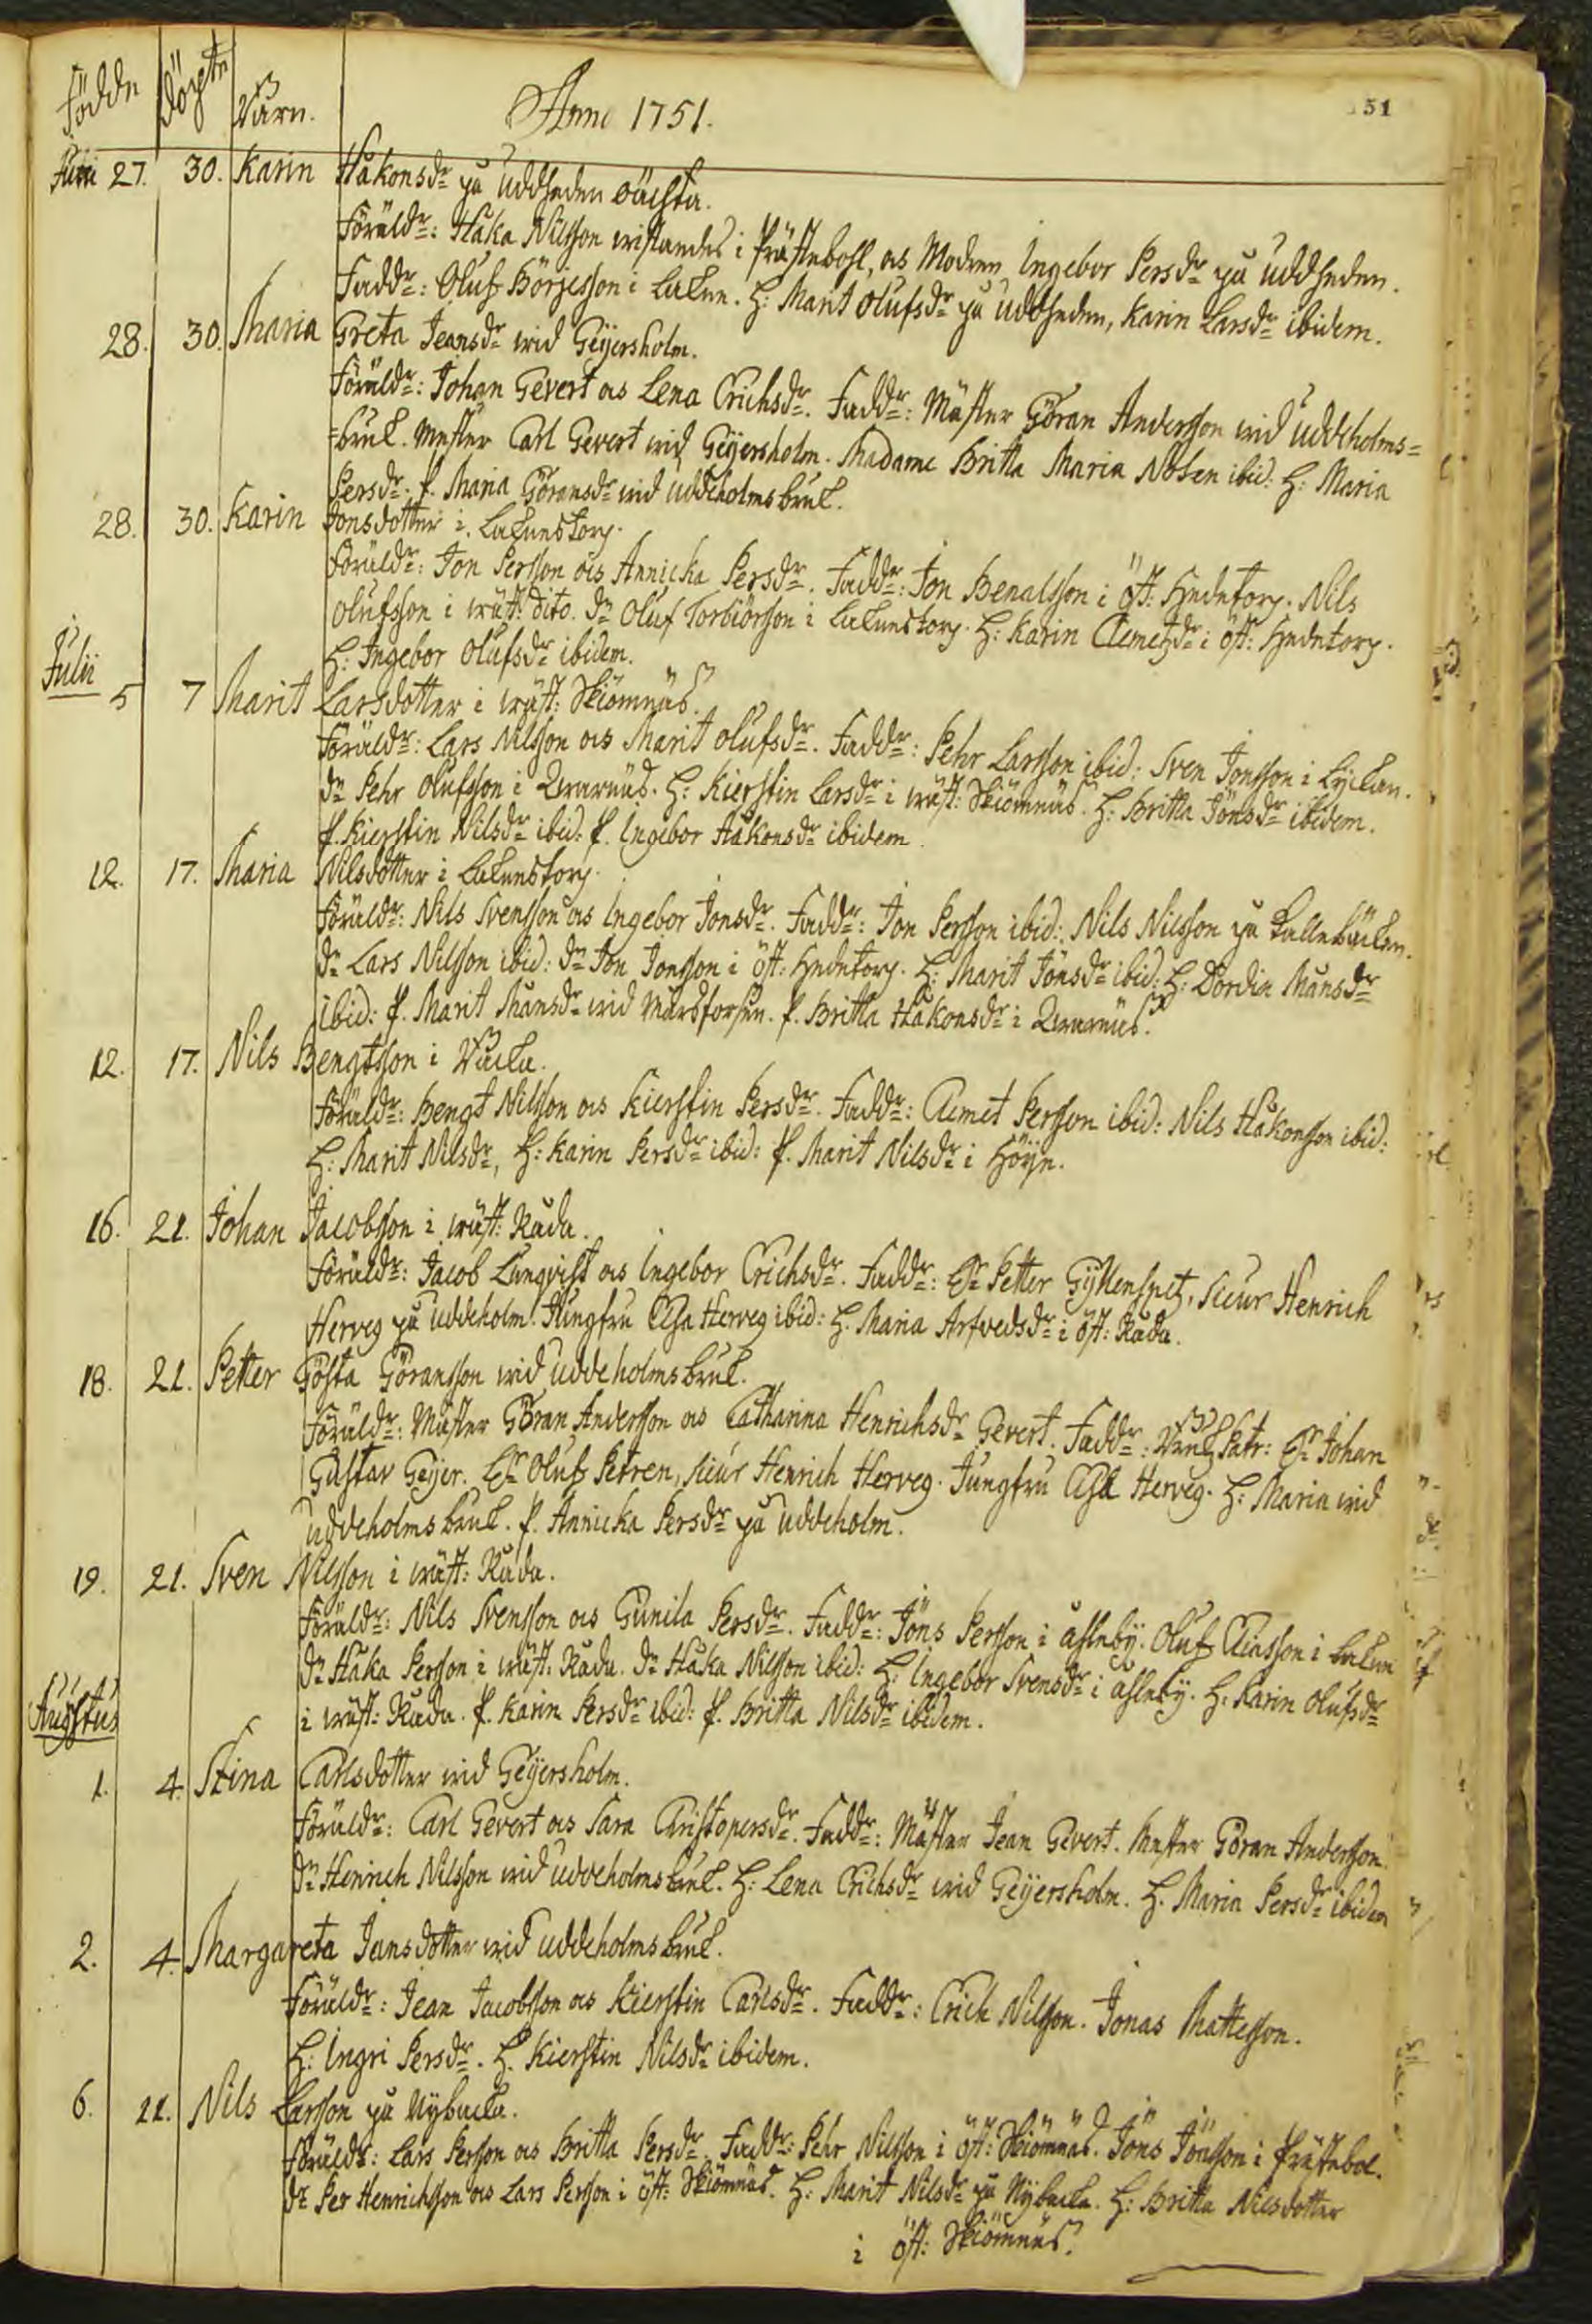 Födde Döpte Barn. Anno 1751. 51
Juni 27. 30. Karin Håkonsdr på Uddheden oächta.
Föräldr: Håka Nilsson wistandes i Prästebohl, os Modren Ingebor Persdr på Uddheden.
Faddr: Oluf Börjesson i Lakene. H: Marit Olufsdr på Uddheden, Karin Larsdr ibidem.
28. 30. Maria Greta Jeansdr wid Geijersholm.
Föräldr: Johan Gevert os Lena Erichsdr. Faddr: Mäster Göran Andersson wid Uddeholms=
=bruk. Mester Carl Gevert wid Geijersholm. Madame Britta Maria ibid: H: Maria
Persdr. P. Maria Göransdr wid Uddeholmsbruk.
28. 30. Karin Jonsdotter i Lakenetorp.
Föräldr: Jon Persson os Annicka Persdr. Faddr: Jon Benalsson i öst: Hedetorp. Nils
Olufsson i wäst: dito. Dr Oluf Torbiörsson i Lakenetorp. H: Karin Clemetzdr i öst: Hedetorp.
H: Ingebor Olufsdr ibidem.
Julii
5 7 Marit Larsdotter i wäst: Skiömnäs.
Föräldr: Lars Nilsson os Marit Olufsdr. Faddr: Pehr Larsson ibid: Sven Jonsson i Lyckan.
Dr Pehr Olufsson i Qwarnäs. H: Kierstin Larsdr i wäst: Skiömnäs. H: Britta Jönsdr ibidem.
P. Kierstin Nilsdr ibid: P. Ingebor Håkonsdr ibidem.
12. 17. Maria Nilsdotter i Lakenetorp.
Föräldr: Nils Svensson os Ingebor Jonsdr. Faddr: Jon Persson ibid: Nils Nilsson på Kallebäcken.
Dr Lars Nilsson ibid: Dr Jon Jonsson i öst: Hedetorp. H: Marit Jönsdr ibid: H: Dordin Månsdr
ibid: P. Marit Månsdr wid P. Britta Håkonsdr i Qwarnäs.
12. 17. Nils Bengtsson i Backa.
Föräldr: Bengt Nilsson os Kierstin Persdr. Faddr: Clemet Persson ibid: Nils Håkonsson ibid:
H: Marit Nilsdr, H: Karin Persdr ibid: P. Marit Nilsdr i Höije.
16. 21. Johan Jacobsson i wäst: Råda.
Föräldr: Jacob Lunqvist os Ingebor Erichsdr. Faddr: Hr Petter Gyllenspetz, Sieur Henrich
Herveg på Uddeholm. Jungfru Elsa Herveg ibid: H. Maria Arfvedsdr i öst: Råda.
18. 21. Petter Gösta Göransson wid Uddeholmsbruk.
Föräldr: Mäster Göran Andersson os Catharina Henrichsdr Gevert. Faddr: Bruks Patr: Hr Johan
Gustav Geijer. Hr Oluf Petren, Sieur Henrich Herveg. Jungfru Elsa Herveg. H: Maria wid
Uddeholmsbruk. P. Annicka Persdr på Uddeholm.
19. 21. Sven Nilsson i wäst: Råda.
Föräldr: Nils Svensson os Gunila Persdr. Faddr: Jöns Persson i Asleby. Oluf Eliasson i Lakene
Dr Håka Persson i wäst: Råda. Dr Håka Nilsson ibid: H: Ingebor Svensdr i Asleby. H: Karin Olufsdr
i wäst: Råda. P. Karin Persdr ibid: P. Britta Nilsdr ibidem.
Augstus
1. 4. Stina Carlsdotter wid Geijersholm.
Föräldr: Carl Gevert os Sara Christopersdr. Faddr: Mäster Jean Gevert. Mester Göran Andersson.
Dr Henrich Nilsson wid Uddeholmsbruk. H: Lena Erichsdr wid Geijersholm. H. Maria Persdr ibidem
2. 4. Margareta Jeansdotter wid Uddeholmsbruk.
Föräldr: Jean Jacobsson os Kierstin Carlsdr. Faddr: Erich Nilsson. Jonas Mattesson.
H: Ingri Persdr. H. Kierstin Nilsdr ibidem.
6. 11. Nils Larsson på Nybacka.
Föräldr: Lars Persson os Britta Persdr. Faddr: Pehr Nilsson i öst: Skiömnäs. Jöns Jönsson i Prästebol.
Dr Per Henrichsson os Lars Persson i öst: Skiömnäs. H: Marit Nilsdr på Nybacka. H: Britta Nilsdotter
i öst: Skiömnäs.